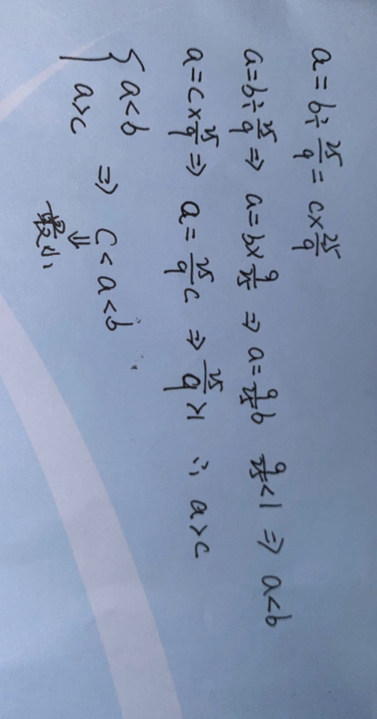 a = b ÷ 25/9 = c × 25/9
a = b ÷ 25/9 ⇒ a = b × 9/25 ⇒ a = 9/25 b 9/25 < 1 ⇒ a < b
a = c × 25/9 ⇒ a = 25/9 c ⇒ 25/9 > 1 ∴ a > c
{ a < b
a > c ⇒ c < a < b
⇓
最小